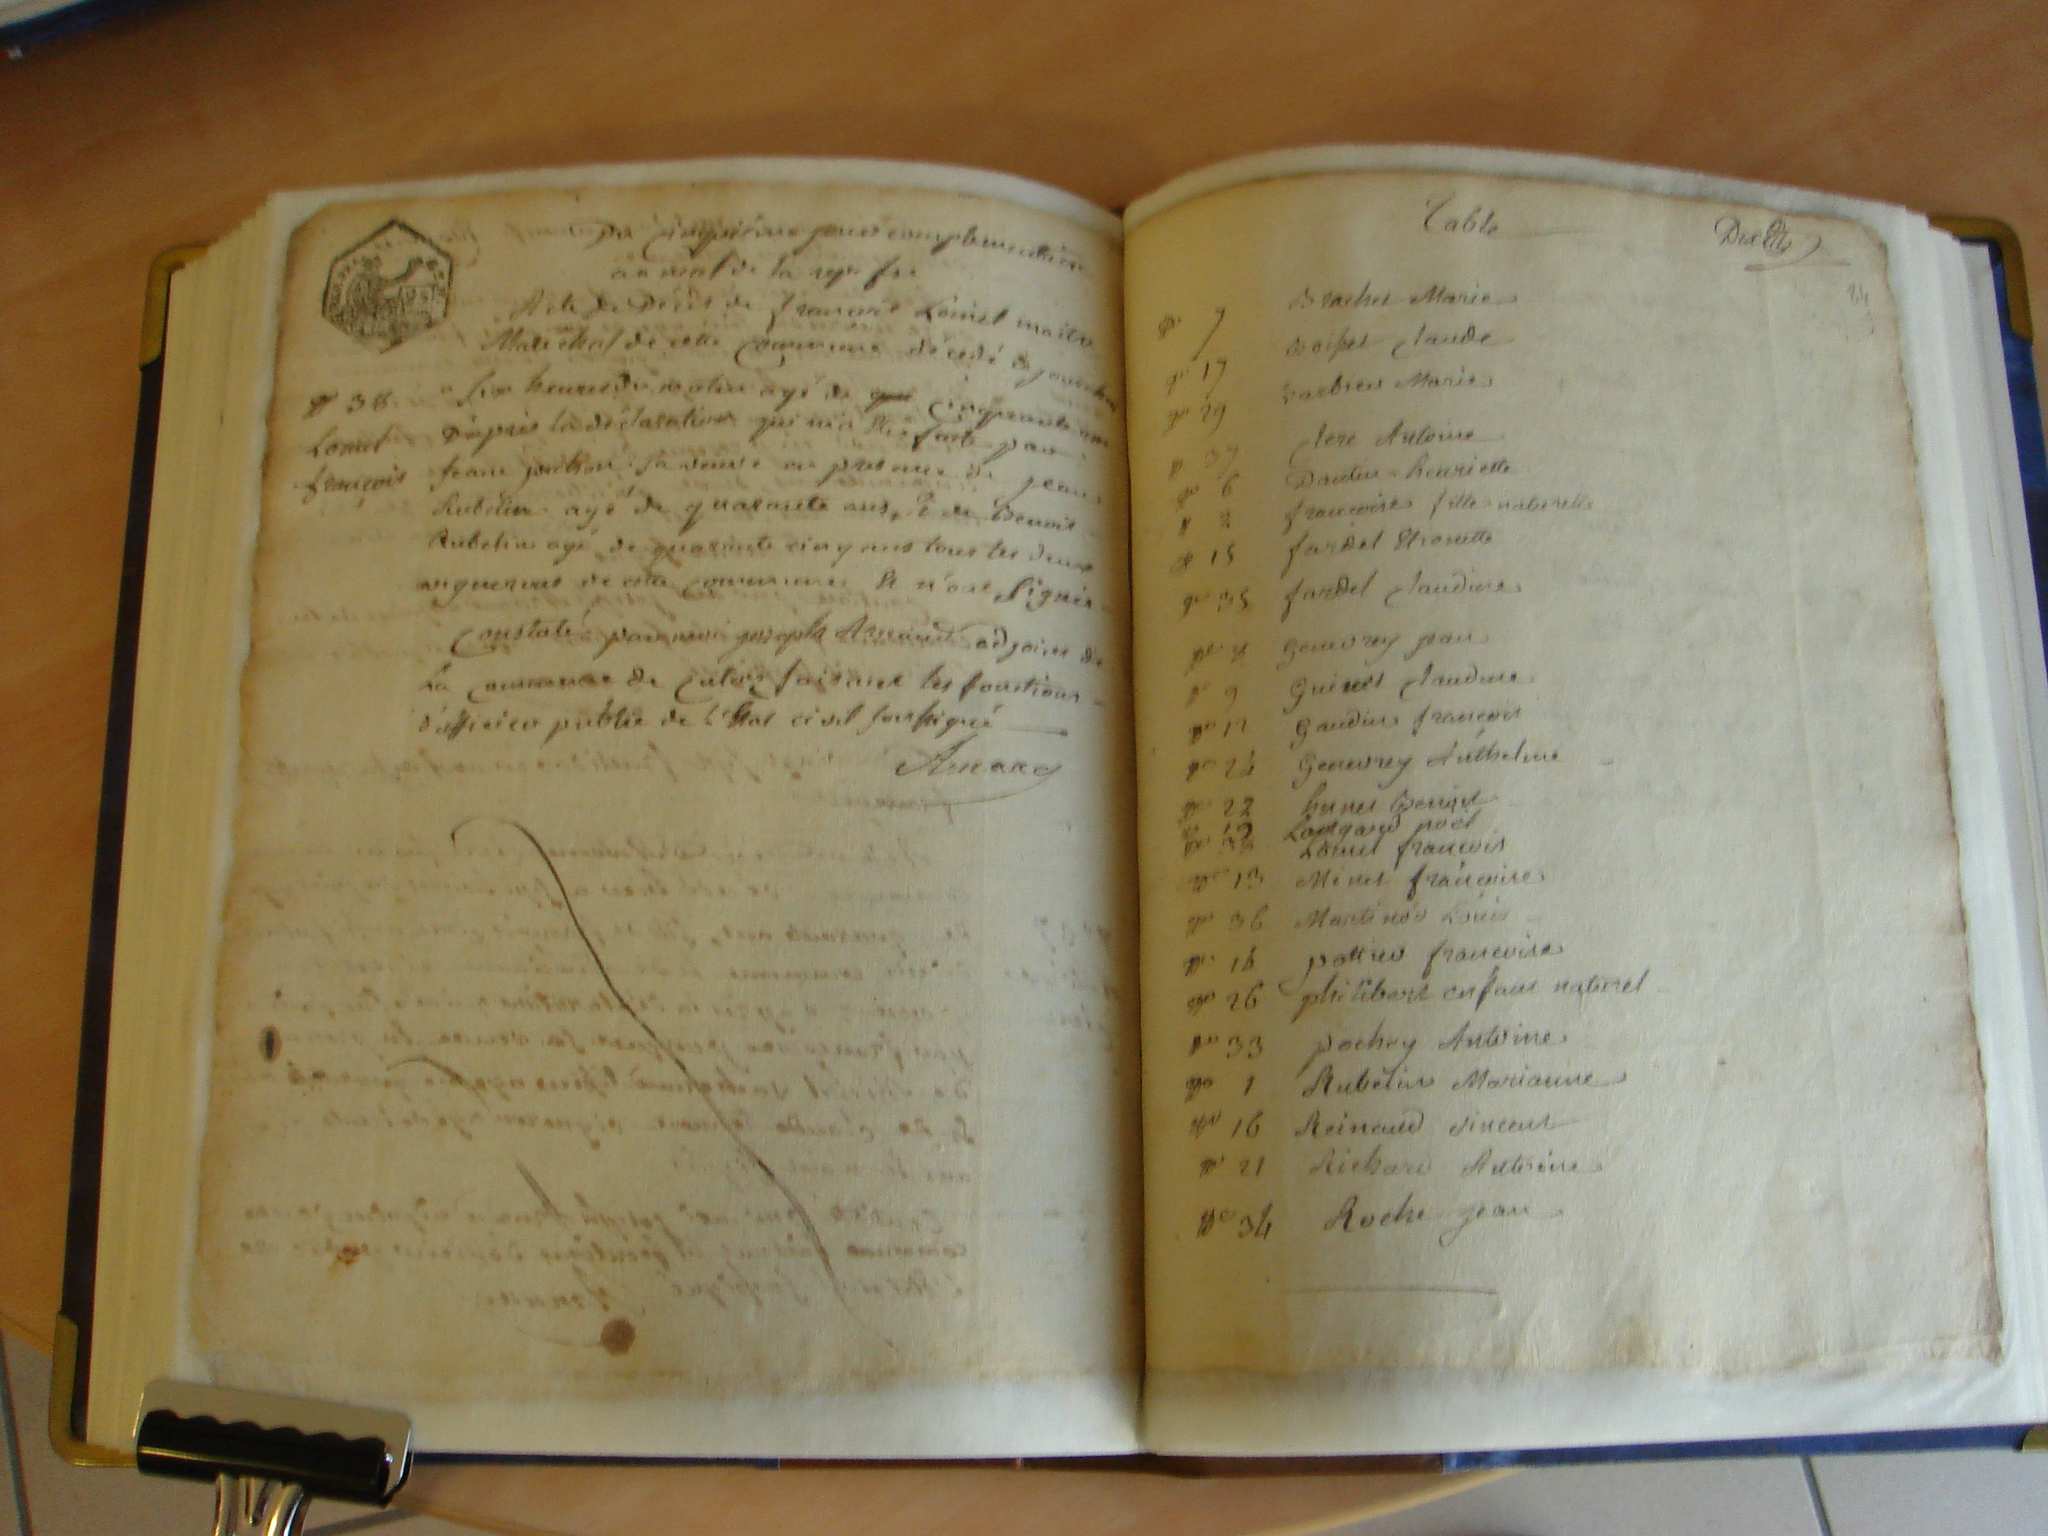 Du Cinquieme jour complementaire
an neuf de la rep. fse
Acte de Decès de françois Lomel maitre
Marechal de cette Commune décedé
a six heures du matin agé de Cinquante
N° 38
Lomel
françois
D'après la déclaration qui m'a été faite par
sa veuve en presence de jean
Rubelin agé de quarante ans, & de Benoit
Rubelin agé de quarante cinq ans tous les deux
vignerons de cette Commune Et n'ont Signés
Constaté par moi joseph Armand adjoint de
La Commune de faisant les fonctions
d'officier public de l'Etat civil soussigné
Armand
Table
24
N° 7 Brachet Marie
N° 17 Claude
N° 29 Marie
N° 37 Clerc Antoine
N° 6 henriette
N° françoise fille naturelle
N° 15 fardel
N° 35 fardel Claudine
N° Genevrey jean
N° 9 Guinet Claudine
N° 12 Gaudin françois
N° 24 Genevrey Anthelme
N° 22 Benoit
N° 19 noël
N° 38 Lomel françois
N° 13 Minet françoise
N° 36 Martinod Louis
N° 14 pottier françoise
N° 26 philibert enfant naturel
N° 33 pochey Antoine
N° 1 Rubelin Marianne
N° 16 Reinaud vincent
N° 21 Richard Antoine
N° 34 Roche jean